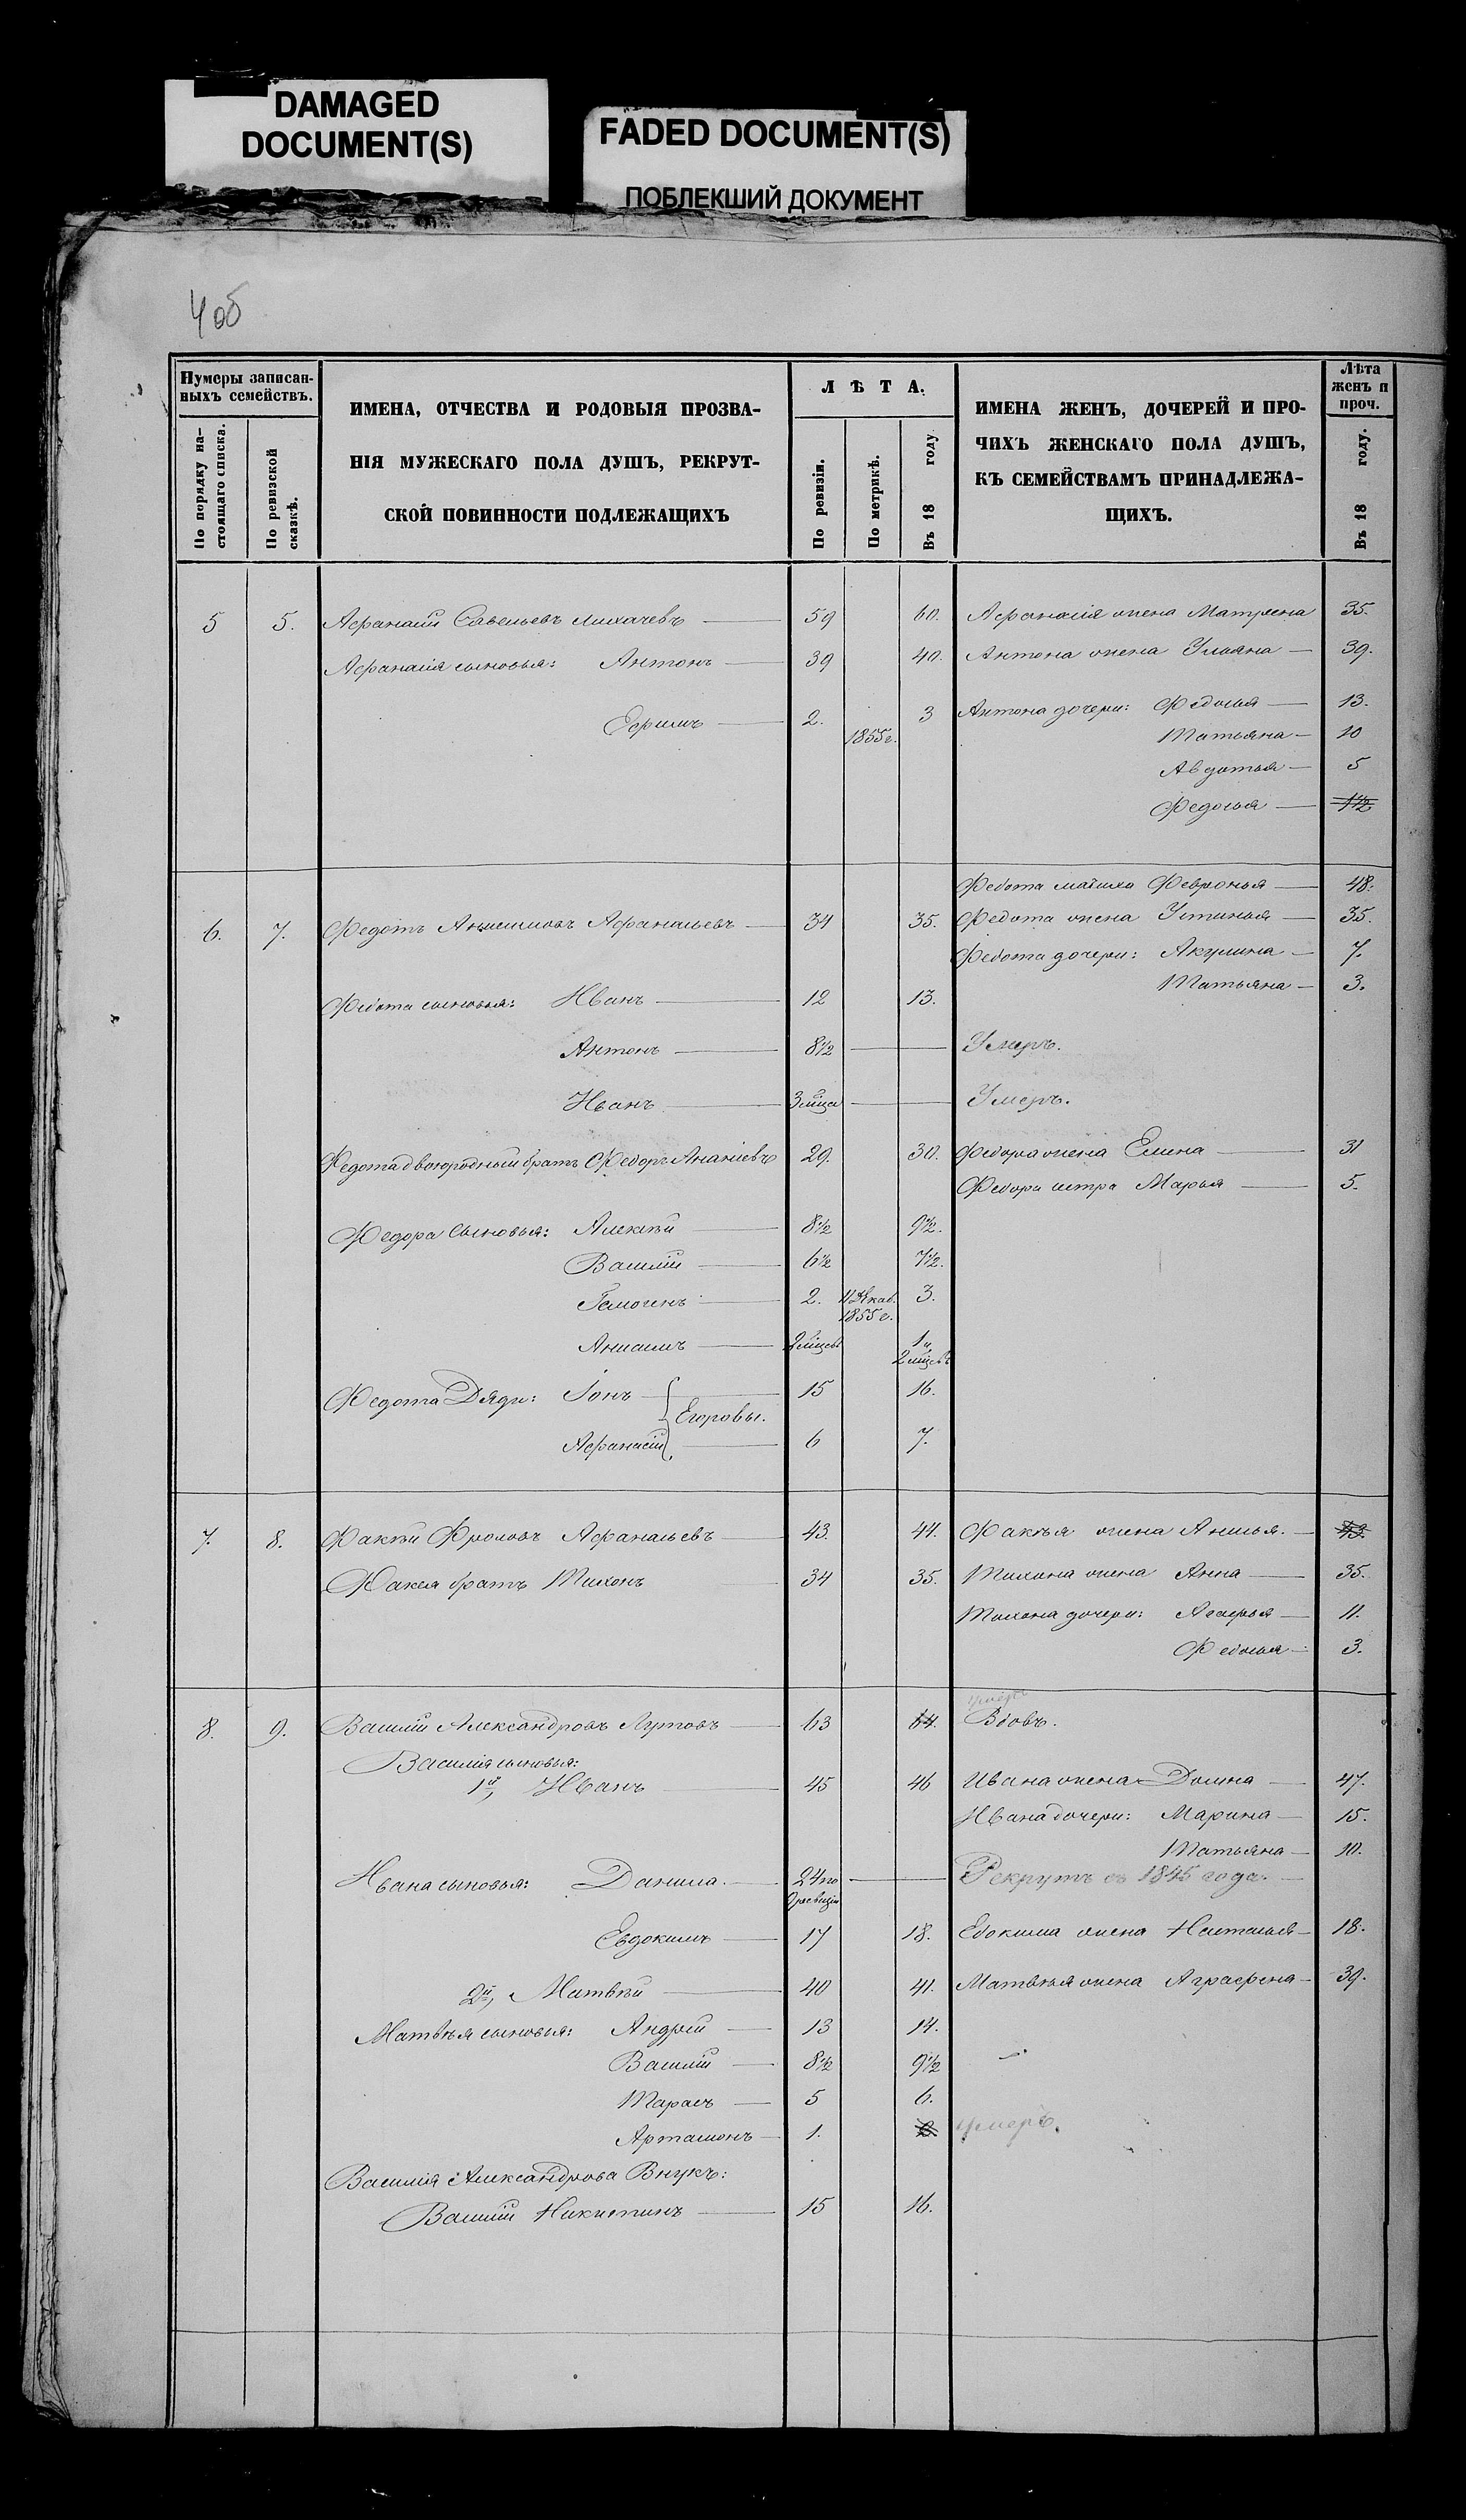 DAMAGED
DOCUMENT(S)
FADED DOCUMENT(S)
ПОБЛЕКШИЙ ДОКУМЕНТ
4об
Нумеры записан-
ныхъ семействъ.
По порядку на-
стоящаго списка.
По ревизской
сказкѣ.
ИМЕНА, ОТЧЕСТВА И РОДОВЫЯ ПРОЗВА-
НІЯ МУЖЕСКАГО ПОЛА ДУШЪ, РЕКРУТ-
СКОЙ ПОВИННОСТИ ПОДЛЕЖАЩИХЪ
ЛѢТА.
По ревизіи.
По метрикѣ.
Въ 18 году
ИМЕНА ЖЕНЪ, ДОЧЕРЕЙ И ПРО-
ЧИХЪ ЖЕНСКАГО ПОЛА ДУШЪ,
КЪ СЕМЕЙСТВАМЪ ПРИНАДЛЕЖА-
ЩИХЪ.
Лѣта
женъ и
проч.
Въ 18 году.
5 5. Афанасій Савельевъ Лихачевъ 59 60. Афанасія жена Матрена 35.
Афанасія сыновья: Антонъ 39 40. Антона жена Ульяна 39.
Ефимъ 2. 1855 г. 3 Антона дочери: Федосья 13.
Татьяна 10
Авдотья 5
Федосья 1 1/2
Федота мачиха Февронья 48.
6. 7. Федотъ Анисимовъ Афанасьевъ 34 35. Федота жена Устинья 35.
Федота дочери: Акулина 7.
Татьяна 3.
Федота сыновья: Иванъ 12 13.
Антонъ 8 1/2 Умеръ.
Иванъ 3 мѣсца Умеръ.
Федота двоюродный братъ Федоръ Ананіевъ 29. 30. Федора жена Елена 31
Федора сестра Марья 5.
Федора сыновья: Алексѣй 8 1/2 9 1/2.
Василій 6 1/2 7 1/2.
2. 1855 г. 3.
Анисимъ 2 мѣсца 1 и
2 мѣсцъ
Федота Дяди: Іонъ 15 16.
Егоровы.
Афанасій 6 7.
7. 8. Факлѣй Фроловъ Афанасьевъ 43. 44. жена Анисья. 43.
братъ Тихонъ 34 35. Тихона жена Анна 35.
Тихона дочери: Агафья 11.
Федосья 3.
умеръ
8. 9. Василій Александровъ Лутовъ 63 64. Вдовъ.
Василія сыновья:
1й, Иванъ 45 46 Ивана жена Домна 47.
Ивана дочери: Марина 15.
Татьяна 10.
Ивана сыновья: Данила 24 по Рекрутъ съ 1845 года.
9 ревизіи
Евдокимъ 17 18. Евдокима жена Наталья 18.
2й, Матвѣй 40 41. Матвѣя жена Аграфена 39.
Матвѣя сыновья: Андрей 13 14.
Василій 8 1/2 9 1/2
Тарасъ 5 6.
Артамонъ 1. 2. умеръ.
Василія Александрова Внукъ:
Василій Никитинъ 15 16.